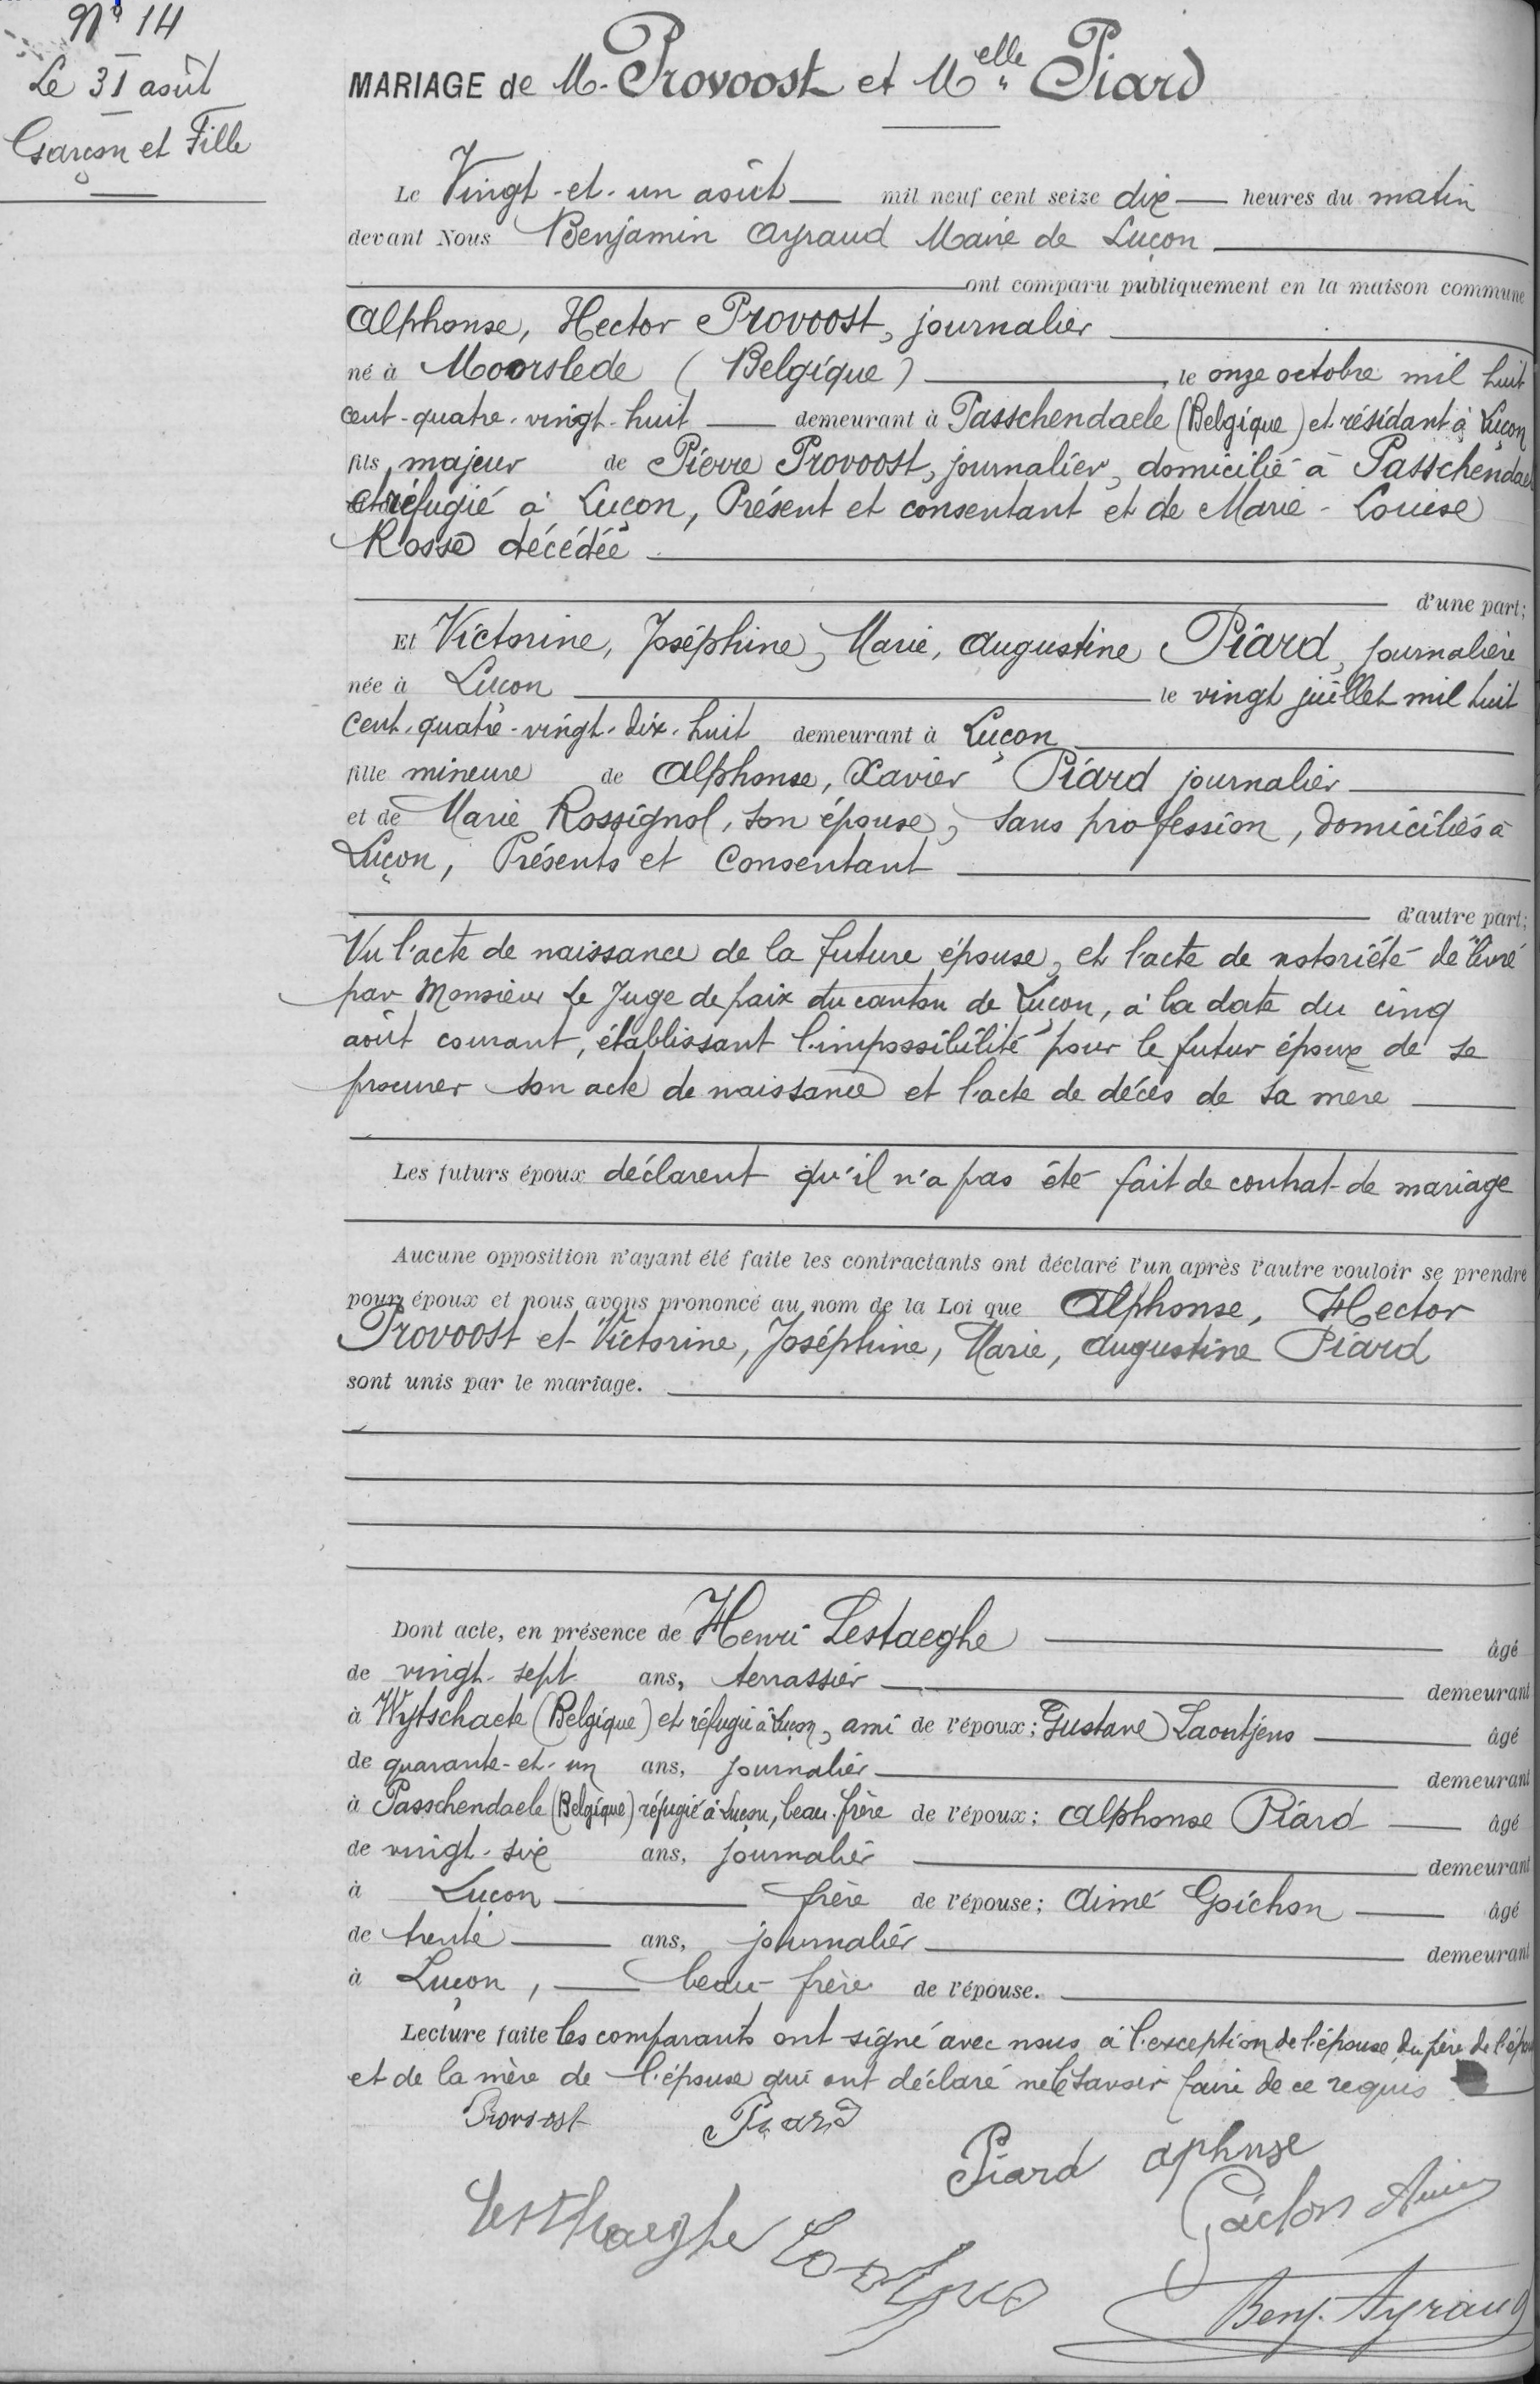 N° 14
Le 31 août
Garçon et Fille
MARIAGE de M. Provoost et Melle Piard
Le Vingt-et-un août mil neuf cent seize dix heures du matin
devant Nous Benjamin Ayraud Maire de Luçon
ont comparu publiquement en la maison commune
Alphonse, Hector Provoost, journalier
né à Moorslede (Belgique), le onze octobre mil huit
cent-quatre-vingt-huit demeurant à Passchendaele (Belgique) et résidant à Luçon
fils majeur de Pierre Provoost, journalier, domicilié à Passchendael
et réfugié à Luçon, Présent et consentant et de Marie-Louise
Rosse décédée
d'une part;
Et Victorine, Joséphine, Marie, Augustine Piard, journalière
née à Luçon le vingt juillet mil huit
cent-quatre-vingt-dix-huit demeurant à Luçon
fille mineure de Alphonse, Xavier Piard journalier
et de Marie Rossignol, son épouse, sans profession, domiciliés à
Luçon, Présents et Consentant
d'autre part;
Vu l'acte de naissance de la future épouse, et l'acte de notoriété délivré
par Monsieur le Juge de paix du canton de Luçon, à la date du cinq
août courant, établissant l'impossibilité pour le futur époux de se
procurer son acte de naissance et l'acte de décès de sa mère
Les futurs époux déclarent qu'il n'a pas été fait de contrat de mariage
Aucune opposition n'ayant été faite les contractants ont déclaré l'un après l'autre vouloir se prendre
pour époux et nous avons prononcé au nom de la Loi que Alphonse, Hector
Provoost et Victorine, Joséphine, Marie, Augustine Piard
sont unis par le mariage.
Dont acte, en présence de Henri Lestaeghe âgé
de vingt-sept ans, terrassier demeurant
à Wytschaete (Belgique) et réfugié à Luçon, ami de l'époux; Gustave Laontjens âgé
de quarante-et-un ans, journalier demeurant
à Passchendaele (Belgique) réfugié à Luçon, beau-frère de l'époux; Alphonse Piard âgé
de vingt-six ans, journalier demeurant
à Luçon frère de l'épouse; Aimé Goichon âgé
de trente ans, journalier demeurant
à Luçon, beau-frère de l'épouse.
Lecture faite les comparants ont signé avec nous à l'exception de l'épouse, du père de l'époux
et de la mère de l'épouse qui ont déclaré ne le savoir faire de ce requis
Provoost Piard
Piard aphnse
Lesthaeghe
Benj. Ayraud